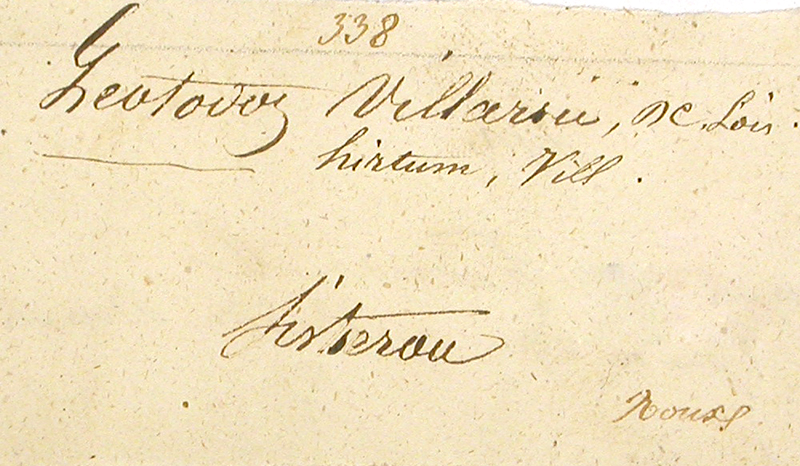 338
Leotodon Villarsii, DC. Lois.
hirtum, Vill.
Sisteron
Roux